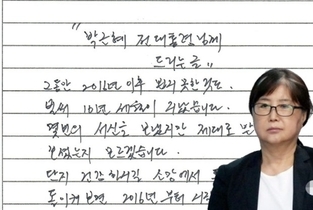 "박근혜 전 대통령님께
드리는 글"
그동안 2016년 이후 뵙지 못한 것도
벌써 10년 세월이 되었습니다.
몇번의 서신을 보냈지만 제대로 받
으셨는지 모르겠습니다.
단지 건강하시길 소망에서
돌이켜 보면, 2016년부터 시작